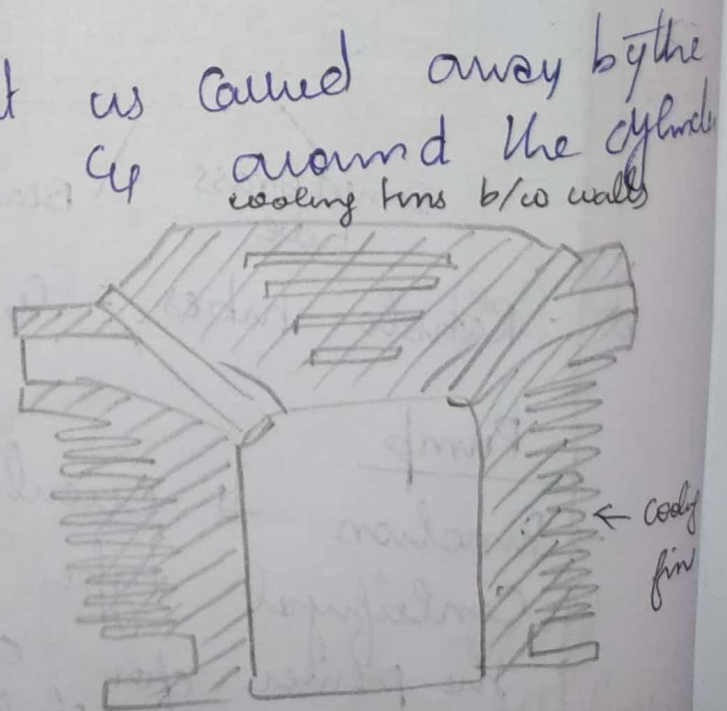 t is carried away by the
around the cylinde
cooling fins b/w walls
Pump
← cooly
fin